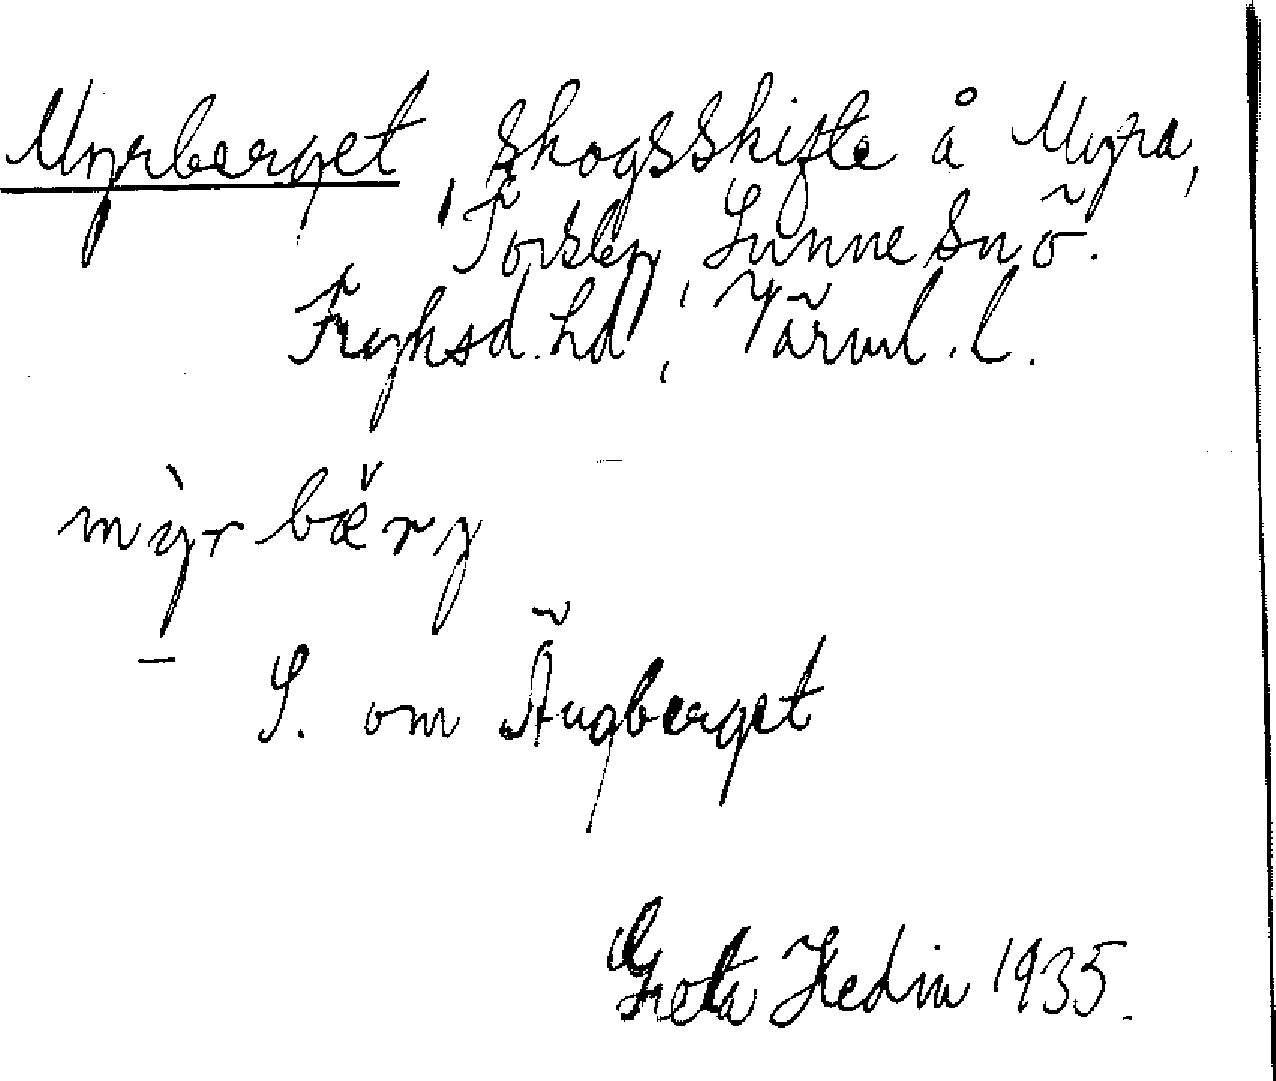 Myrberget, skogsskifte å Myra,
Torsby, Sunne sn ö.
Fryksd. hd, Värml. l.
mỳr bæ̌rj
S. om Ängberget
Greta Hedin 1935.